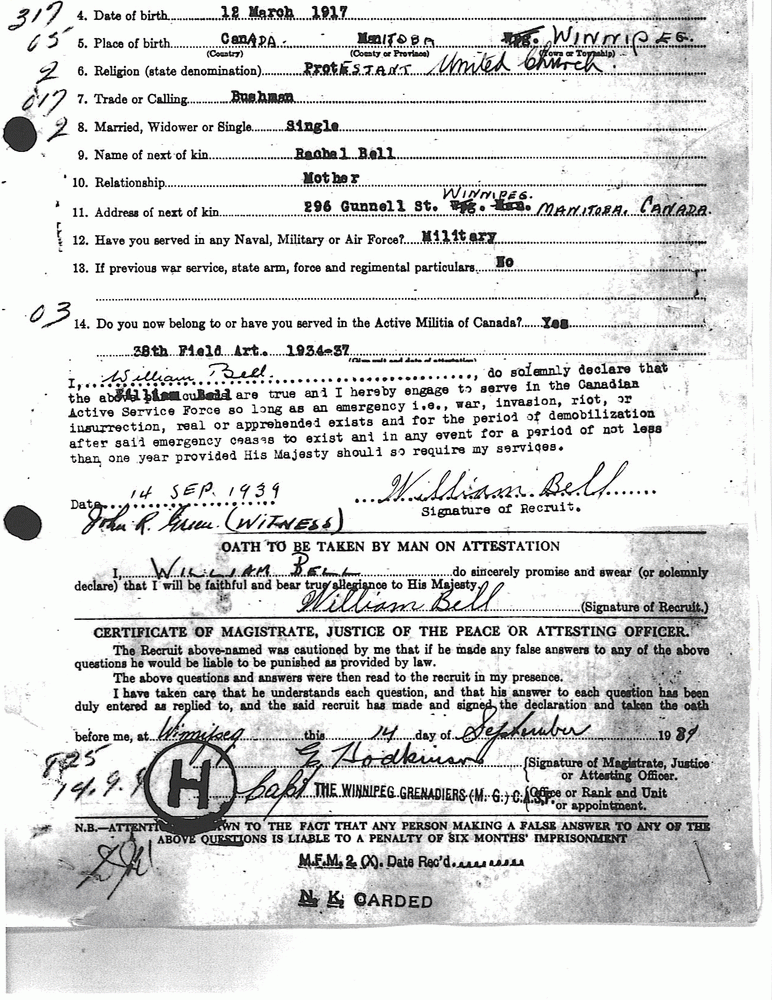 317 4. Date of birth 12 March 1917
05 5. Place of birth CANADA. MANITOBA Wpg. WINNIPEG.
(Country) (County or Province) (Town or Township)
2 6. Religion (state denomination) PROTESTANT United Church.
017 7. Trade or Calling Bushman
2 8. Married, Widower or Single Single
9. Name of next of kin Rachel Bell
10. Relationship Mother
WINNIPEG.
11. Address of next of kin 296 Gunnell St. Wpg. Man. MANITOBA. CANADA.
12. Have you served in any Naval, Military or Air Force? Military
13. If previous war service, state arm, force and regimental particulars No
03 14. Do you now belong to or have you served in the Active Militia of Canada? Yes
38th Field Art. 1934-37
(Give unit and date of attestation)
I, William Bell, do solemnly declare that
the above William Bell are true and I hereby engage to serve in the Canadian
Active Service Force so long as an emergency i.e., war, invasion, riot, or
insurrection, real or apprehended exists and for the period of demobilization
after said emergency ceases to exist and in any event for a period of not less
than one year provided His Majesty should so require my services.
Date 14 SEP. 1939 William Bell
Signature of Recruit.
John R. Green (WITNESS)
OATH TO BE TAKEN BY MAN ON ATTESTATION
I, WILLIAM BELL do sincerely promise and swear (or solemnly
declare) that I will be faithful and bear true allegiance to His Majesty.
William Bell (Signature of Recruit.)
CERTIFICATE OF MAGISTRATE, JUSTICE OF THE PEACE OR ATTESTING OFFICER.
The Recruit above-named was cautioned by me that if he made any false answers to any of the above
questions he would be liable to be punished as provided by law.
The above questions and answers were then read to the recruit in my presence.
I have taken care that he understands each question, and that his answer to each question has been
duly entered as replied to, and the said recruit has made and signed the declaration and taken the oath
before me, at Winnipeg this 14 day of September 1939
G Hodkinson (Signature of Magistrate, Justice
or Attesting Officer.
H Capt THE WINNIPEG GRENADIERS (M. G.) C.A.S.F. (Office or Rank and Unit
or appointment.
14.9.
N.B.—ATTENTION DRAWN TO THE FACT THAT ANY PERSON MAKING A FALSE ANSWER TO ANY OF THE
ABOVE QUESTIONS IS LIABLE TO A PENALTY OF SIX MONTHS' IMPRISONMENT
M.F.M. 2 (X). Date Rec'd
N. K. CARDED